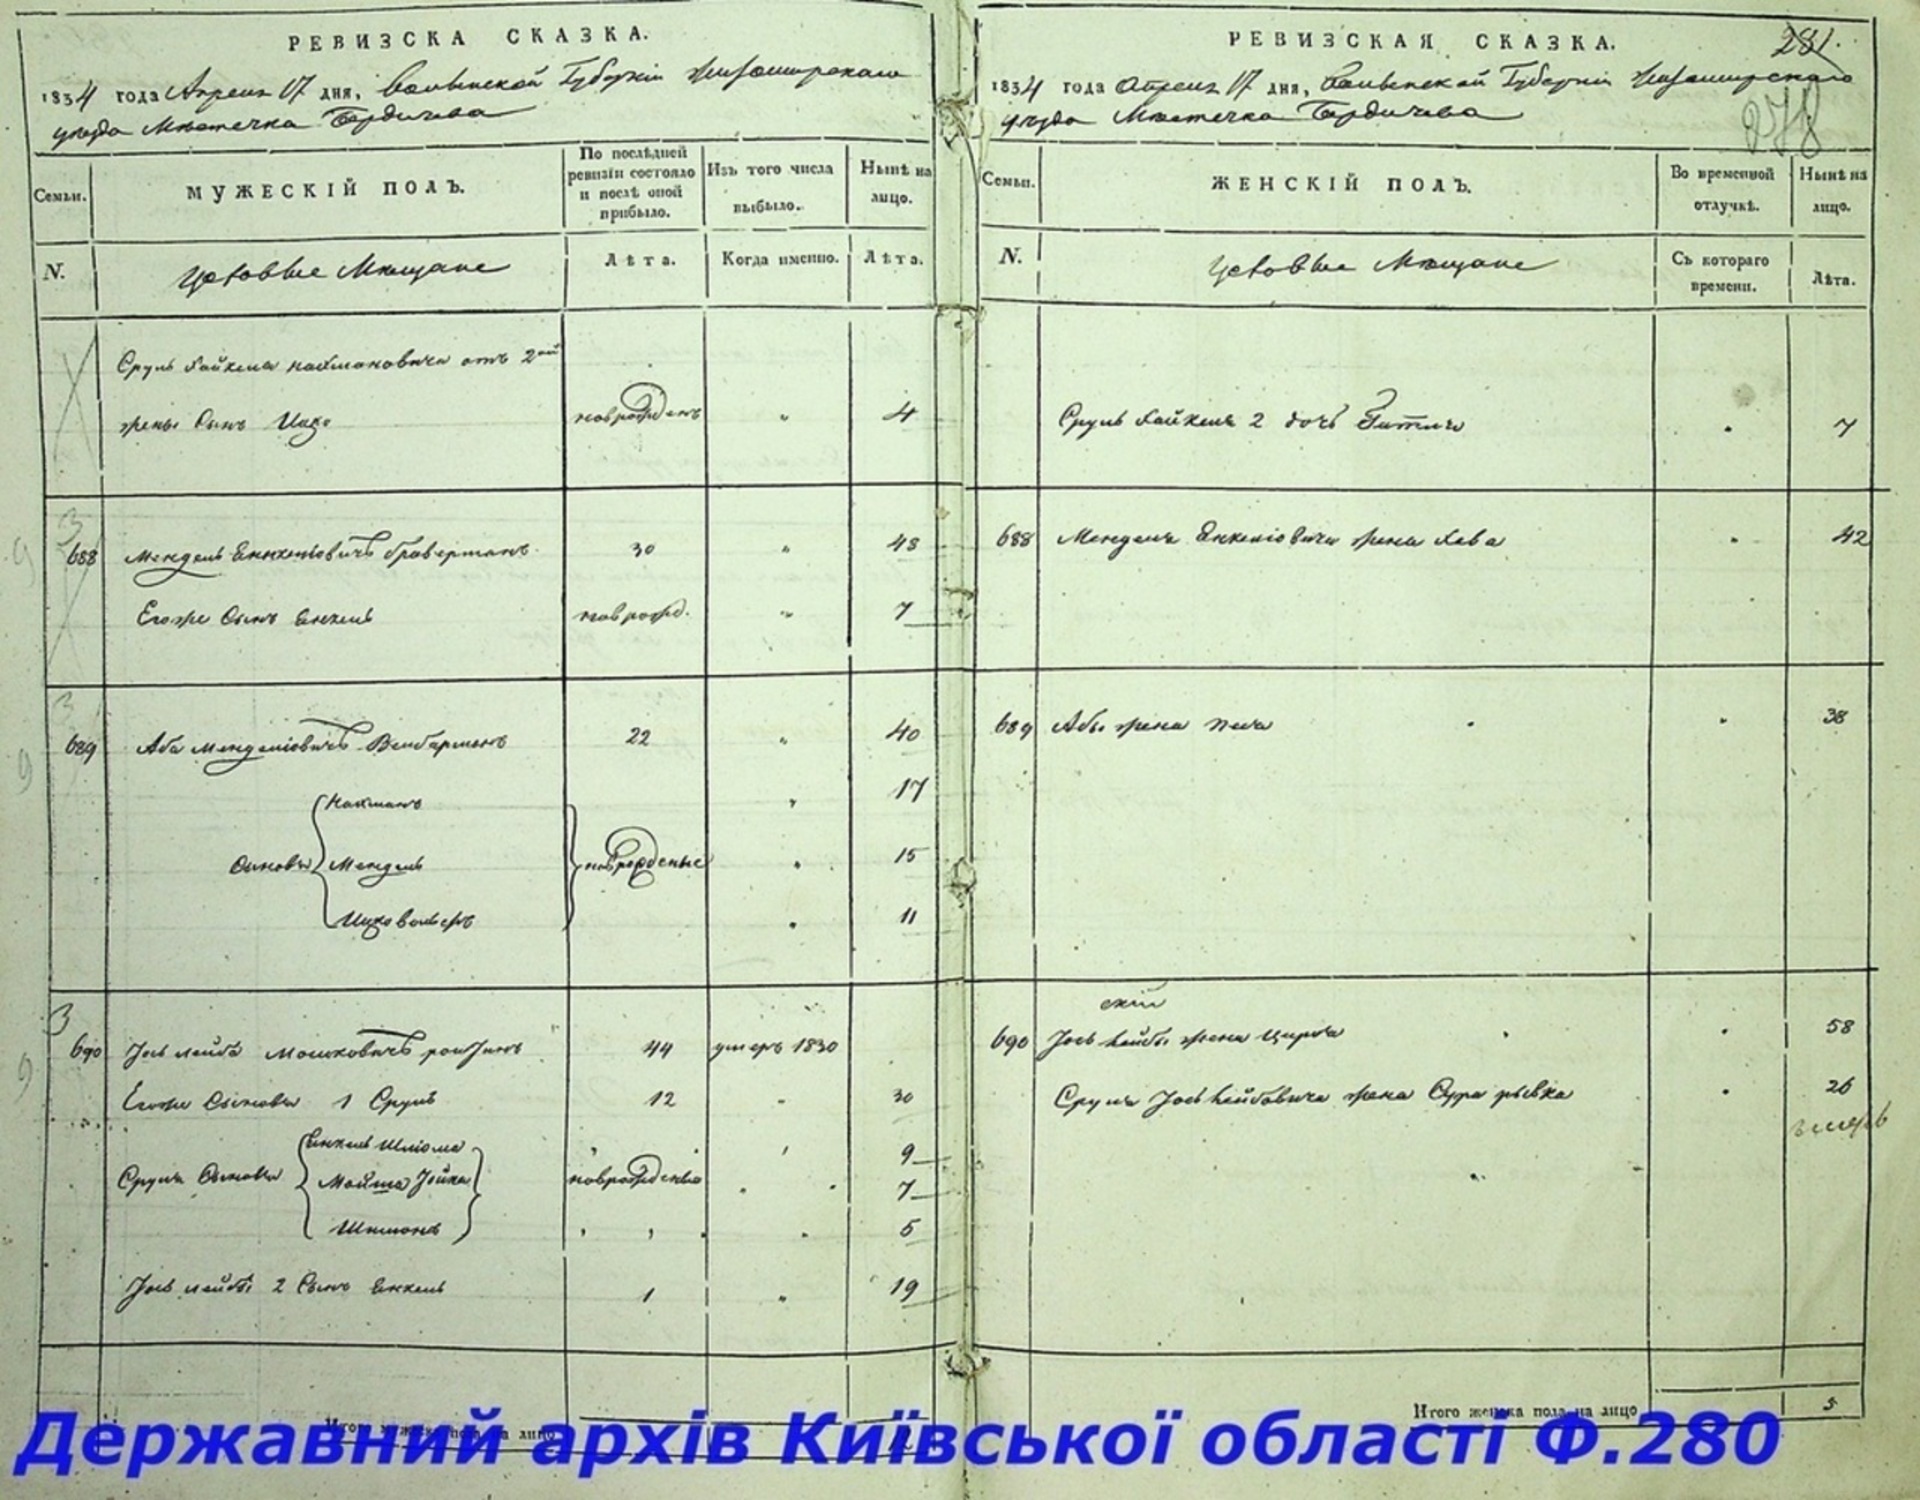 РЕВИЗСКА СКАЗКА.
1834 года Апреля 17 дня, Волынской Губернии Житомирского
уезда Местечка Бердичева
Семьи.
МУЖЕСКІЙ ПОЛЪ.
По послѣдней ревизіи состояло и послѣ оной прибыло.
Изъ того числа выбыло.
Нынѣ на лицо.
N.
Цеховые Мещане
Лѣта.
Когда именно.
Лѣта.
Сруль Хайкеля Нахмановича отъ 2ой
жены Сынъ Ицко новорожденъ " 4
688 Мендель Енкелiовичъ 30 " 48
Егоже Сынъ Енкель новорожд. " 7
689 Аба Менделiовичъ 22 " 40
Нахманъ " 17
Сыновья Мендель новорожденые " 15
Ицко Вольферъ " 11
690 Іось Лейба Мошковичъ 44 умеръ 1830
Егоже Сыновья 1 Сруль 12 " 30
Енкель Шліома 9
Сруля Сыновья новорожденые 7
Шимонъ 5
Іось Лейбы 2 Сынъ Енкель 1 " 19
Итого мужеска пола на лицо
РЕВИЗСКАЯ СКАЗКА.
281.
278
1834 года Апреля 17 дня, Волынской Губерніи Житомирского
уезда Местечка Бердичева
Семьи.
ЖЕНСКІЙ ПОЛЪ.
Во временной отлучкѣ.
Нынѣ на лицо.
N.
Цеховые Мещане
Съ котораго времени.
Лѣта.
Сруль Хайкеля 2 дочь Гитля 7
688 Менделя Енкеліовича жена Хава 42
689 Абы жена Песя 38
690 Іось Лейбы жена Цирля 58
Сруля Іось Лейбовича жена Сура Рывка 26
Итого женска пола на лицо 5
Державний архів Київської області Ф.280